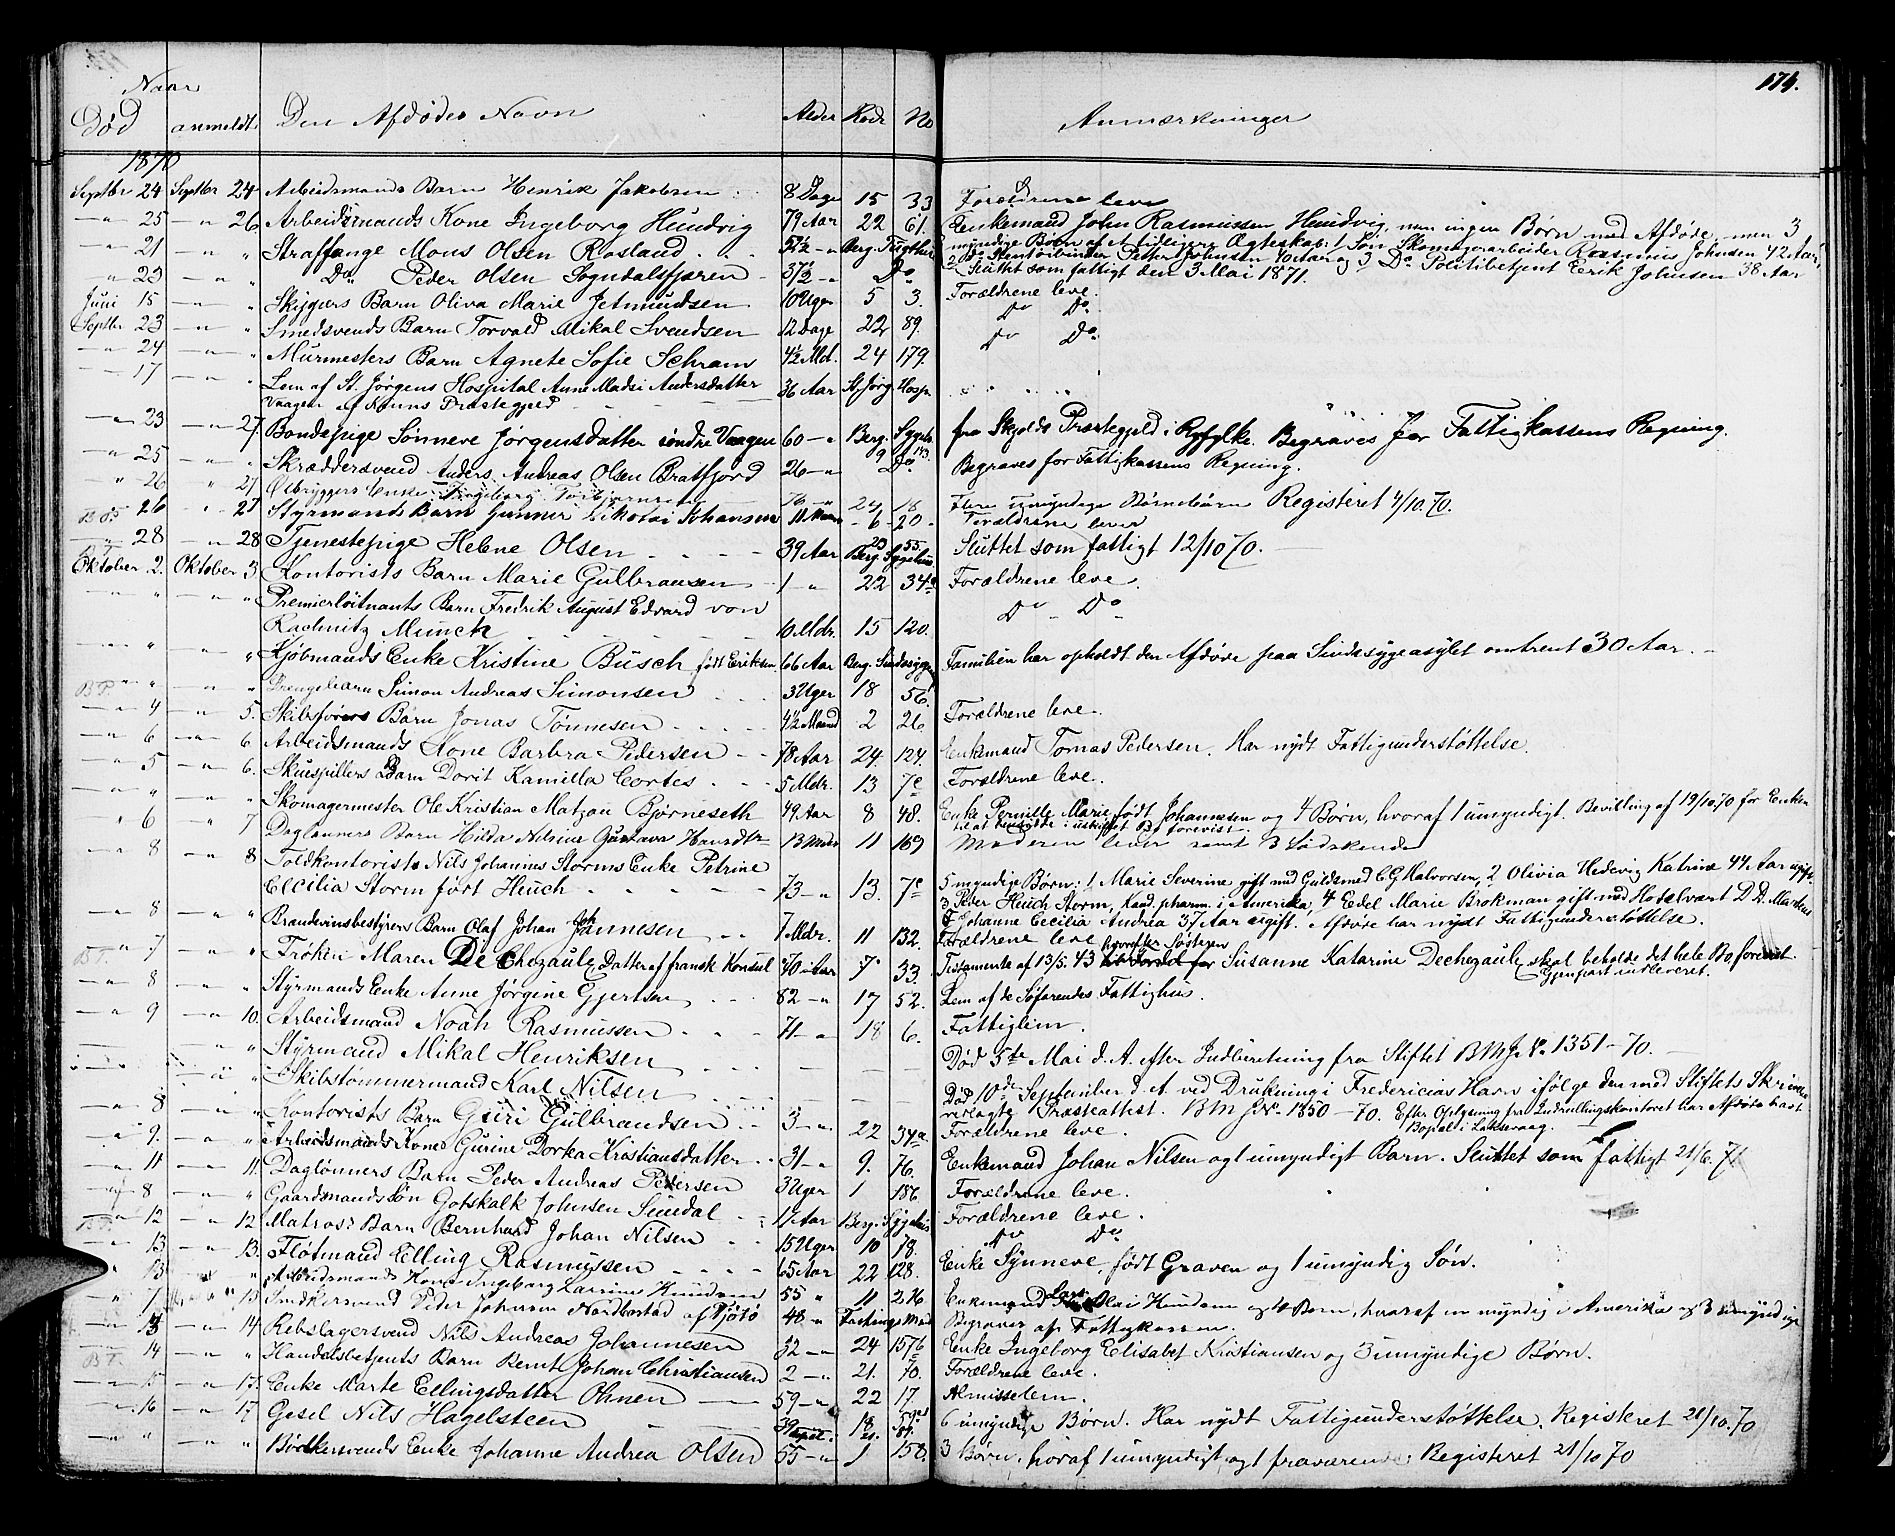 174.
Naar
Død anmeldt. Den Afdødes Navn Alder Rode No Anmærkninger
1870
Septbr 24 Septbr 24 Arbeidsmands Barn Henrik Jakobsen 8 Dage 15 33 Forældrene leve
— " — 25 — " 26 Arbeidsmands Kone Ingeborg Hundvig 79 Aar 22 61. Enkemand John Rasmussen Hundvig, men ingen Børn med Afdøde, men 3
myndige Børn af et tidligere Ægteskab: 1 Søn Skomagerarbeider Rasmus Johnsen 42 Aar,
— " — 21 — " — " Straffange Mons Olsen Rosland 52½ — " Berg. Tugthus 2 Do Kontorbinder Petter Johnsen 40 Aar og 3 Do Politibetjent Eerik Johnsen 38 Aar
— " 23 — " — " Do Peder Olsen Sogndalsfjæren 37½ — " Do Sluttet som fattigt den 3 Mai 1871.
Juni 15 — " — " Skygers Barn Oliva Marie Jetmundsen 10 Uger 5 3. Forældrene leve.
Septbr 23 — " — " Smedsvends Barn Torvald Mikal Svendsen 12 Dage 22 89. Do Do
— " — 24 — " — " Murmesters Barn Agnete Sofie Schram 4½ Md. 24 179. Do Do
— " — 17 — " — " Lem af St. Jørgens Hospital Anne Madsi Andersdatter 36 Aar St. Jørg. Hosp.
Vaagen af Præstegjeld
— " — 23 — " — 27. Bondepige Sønneve Jørgensdatter søndre Vaagen 60 — " Berg. Sygeh. fra Skjolds Præstegjeld i Ryfylke. Begraves for Fattigkassens Regning.
— " — 25 — " — " Skræddersvend Anders Andreas Olsen Bratfjord 26 — " 9 143. Do Begraves for Fattigkassens Regning.
— " 26 — " 27 Ølbryggers Enke Ingeborg 76 — " 24 18 Flere umyndige Børnebørn Registeret 4/10.70.
26 27 Styrmands Barn Gunner Nikolai Johansen 11 6 20 Forældrene leve
— " — 28 — " — 28 Tjenestepige Helene Olsen 39 Aar Berg. Sygehus 55. Sluttet som fattigt 12/10 70.
Oktober 2. Oktober 3. Kontorists Barn Marie Gulbransen 1 " 22 34a Forældrene leve.
— " — " — " — " Premierløitnants Barn Fredrik August Edvard von
Rachnitz Munch 10 Mdr. 15 120. Do Do
— " — " — " — " Kjøbmands Enke Kristine Busch født Eriksen 66 Aar Berg. Sindssyge Familien har opholdt den Afdøde paa Sindssygeasylet omtrent 30 Aar.
B.P. — " — " — " Drengebarn Simon Andreas Simonsen 3 Uger 18 56.
— " — 4 — " — 5. Skibsførers Barn Jonas Tønnesen 4½ Maaned 2 26 Forældrene leve.
— " — 6 — " — 6. Arbeidsmands Kone Barbra Pedersen 78 Aar 24. 124. Enkemand Tomas Pedersen. Har nydt Fattigunderstøttelse.
— " — 5 — " — 6. Skuespillers Barn Dorit Kamilla Cortes 5 Mdr. 13 7c Forældrene leve.
— " — " — " — " Skomagermester Ole Kristian Matzau Bjørneseth 49 Aar 8 48. Enke Pernille Marie født Johannesen og 4 Børn, hvoraf 1 umyndigt. Bevilling af 19/10.70 for Enken
til at hensidde i uskiftet Bo forevist.
— " 6 — " 7 Dagløners Barn Hilda Adrine Gustava Hansdtr 13 Mdr 11 169 Moderen lever samt 3 Sødskende
— " — 8 — " — 8 Toldkontorist Nils Johannes Storms Enke Petrine
Cecilia Storm født Heuch 73 — " 13. 7c 5 myndige Børn: 1 Marie Severine gift med Guldsmed C. G. Halvorsen, 2 Olivia Hedevig Katrine 44 Aar ugift.
3 Peder Heuch Storm, Kand. pharm. i Amerika, 4 Edel Marie Brokman gift med Hotelvært D. D. Martens
5 Johanne Cecilia Andrea 37 Aar ugift. Afdøde har nydt Fattigunderstøttelse.
— " — 8 — " — " Brændevinsbestyrers Barn Olaf Johan Johannesen 7 Mdr. 11 132. Forældrene leve
B.T. — " 7. — " — " Frøken Maren De Chezaule, Datter af fransk Konsul 70 Aar 7. 33. Testamente af 13/5. 43 hvorefter Søsteren Susanne Katarine Dechezaule skal beholde det hele Bo forevist.
Gjenpart indleveret.
— " — 8 — " — " Styrmands Enke Anne Jørgine Gjertsen 82 — " 17 52. Lem af de Søfarendes Fattighus.
— " — 9 — " — 10. Arbeidsmand Noah Rasmussen 71 — " 18 6. Fattiglem.
— " Styrmand Mikal Henriksen Død 5te Mai d. A. efter Indberetning fra Stiftet BMJ. No 1351 — 70.
— " Skibstømmermand Karl Nilsen Død 10de September d. A. ved Drukning i Fredericias Havn ifølge den med Stiftets Skrivelse
verlagte Præsteattest. BMJ No 1350 — 70. Efter Oplysning fra Indrulleringskontoret har Afdøde havt
Bopæl i Laksevaag.
— " — 8 — " — " Kontorists Barn Guri Gulbrandsen 3 — " 22 34a. Forældrene leve.
— " 9. — " — " Arbeidsmands Kone Gurine Dorka Kristiansdatter 31 — " 9. 76. Enkemand Johan Nilsen og 1 umyndigt Barn. Sluttet som fattigt 21/6. 71
— " — 11 — " — 11. Dagløners Barn Peder Andreas Pedersen 3 Uger 1 186. Forældrene leve.
— " 8 — " — " Gaardmandssøn Gotskalk Johnsen Sundal 17 Aar Berg. Sygehus Forældrene leve.
B.T. — " 12 — " — 12 Matros's Barn Bernhard Johan Nilsen 15 Uger 10 18. Do Do
— " — 13 — " — 13. Fløtmand Elling Rasmussen 65 Aar 22 128. Enke Synneve, født Graven og 1 umyndig Søn.
" 13 " Arbeidsmands Kone Ingeborg Larine Knudsen 55 " 11 216 Enkemand Lars Olai Knudsen og 4 Børn, hvoraf en myndig i Amerika og 3 umyndige
" 7 13 Snedkersvend Peder Johnsen Nordbostad af Tjøtø 48 " Fæstnings Begraves af Fattigkassen.
— " — 13 — " — 14 Rebslagersvend Nils Andreas Johannesen 32 — " 24 157b Enke Ingeborg Elisabet Kristiansen og 3 umyndige Børn.
B.T. — " — 14 — " — " Handelsbetjents Barn Bernt Johan Christiansen 2 — " 21. 70. Forældrene leve.
— " — 15 — " — 17. Enke Marte Ellingsdatter Ohnen 59 — " 22 17. Almisselem.
— " — 16 — " — 17 Gesel Nils Hagelsteen 39 18 59. 6 umyndige Børn. Har nydt Fattigunderstøttelse. Registeret 21/10.70
— " — " — " — " Bødkersvends Enke Johanne Andrea Olsen 55 — " 1 158. 3 Børn, hvoraf 1 umyndigt og 1 fraværende. Registeret 21/10 70